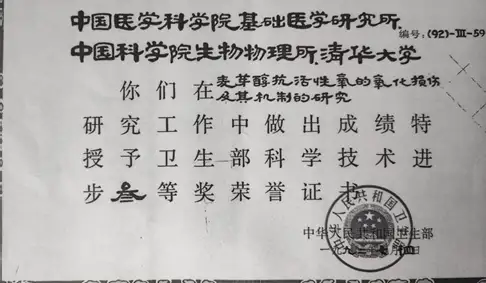 中国医学科学院基础医学研究所.
编号:(92)-Ⅲ-59
中国科学院生物物理所.清华大学
你们在麦芽醇抗活性氧的氧化损伤
及其机制的研究
研究工作中做出成绩特
授予卫生部科学技术进
步叁等奖荣誉证书
中华人民共和国卫生部
中华人民共和国卫生部